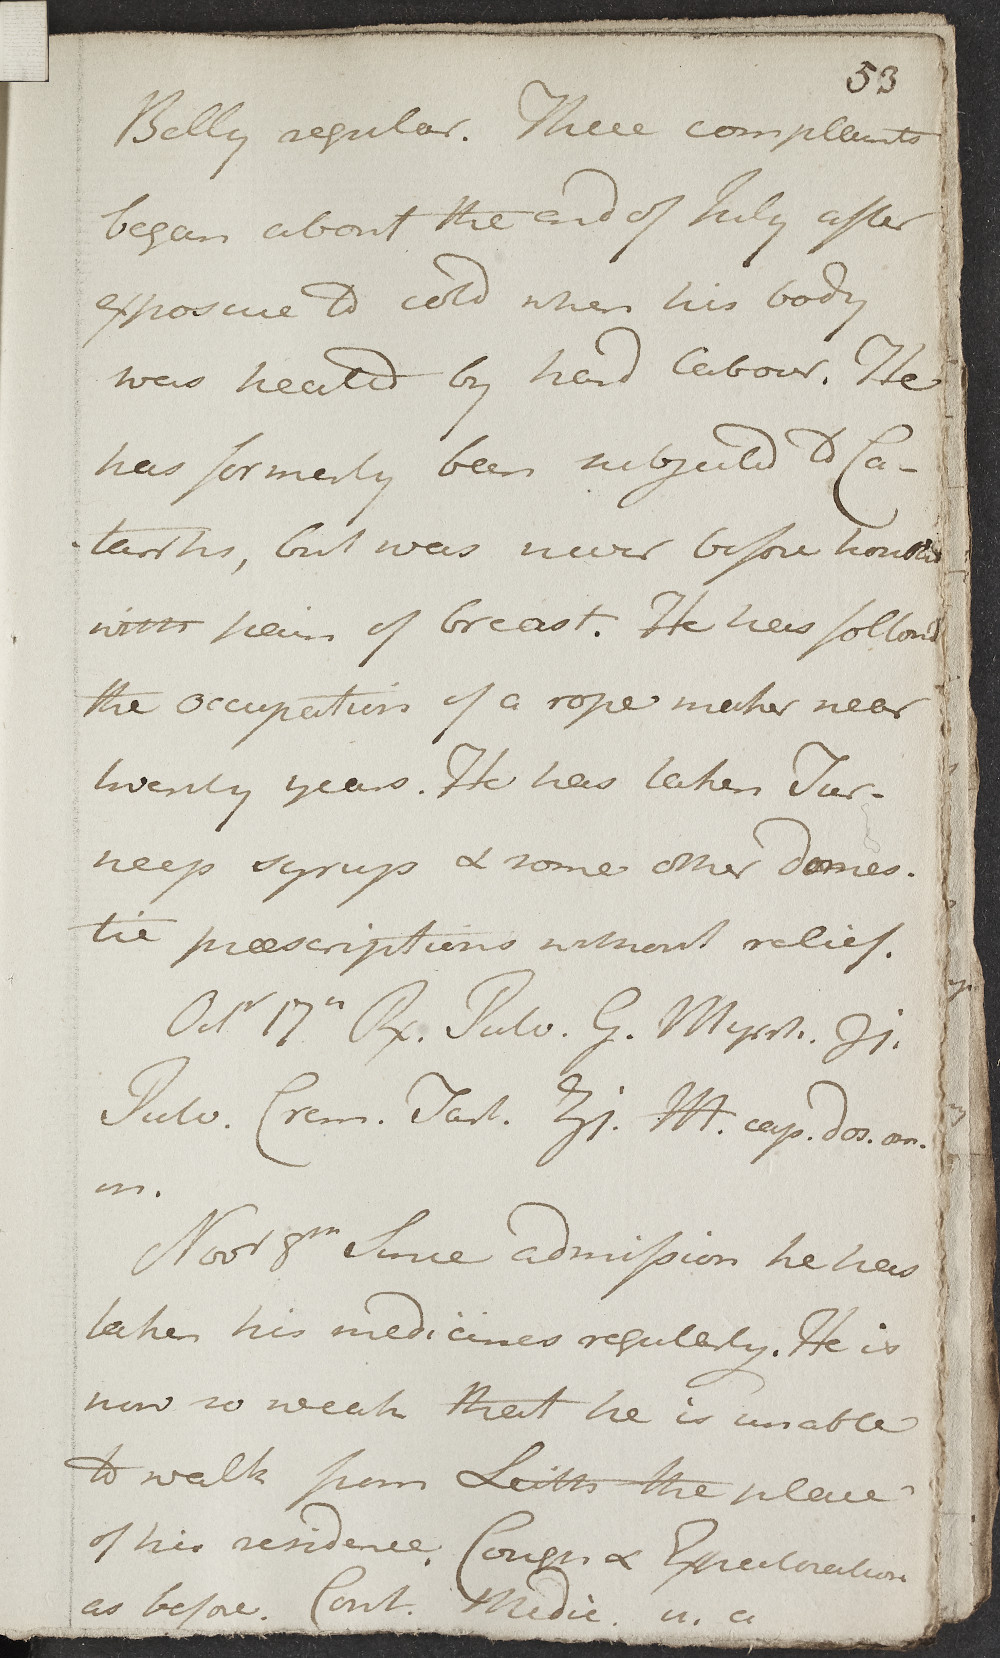 53
Belly regular. These complaints
began about the end of July after
exposure to cold when his body
was heated by hard labour. He
has formerly been subjected to Ca-
tarrhs, but was never before troubled
with pain of breast. He has follow'd
the occupation of a rope maker near
twenty years. He has taken Tur-
neep syrup & some other domes-
tic præscriptions without relief.
Octr 17th ℞. Pulv. G. Myrrh. ʒj.
Pulv. Crem. Tart. ℥j. M. cap. dos. om.
m.
Novr 8th Since admission he has
taken his medicines regularly. He is
now so weak that he is unable
to walk from Leith the place
of his residence. Cough & Expectoration
as before. Cont. Medic. u. a